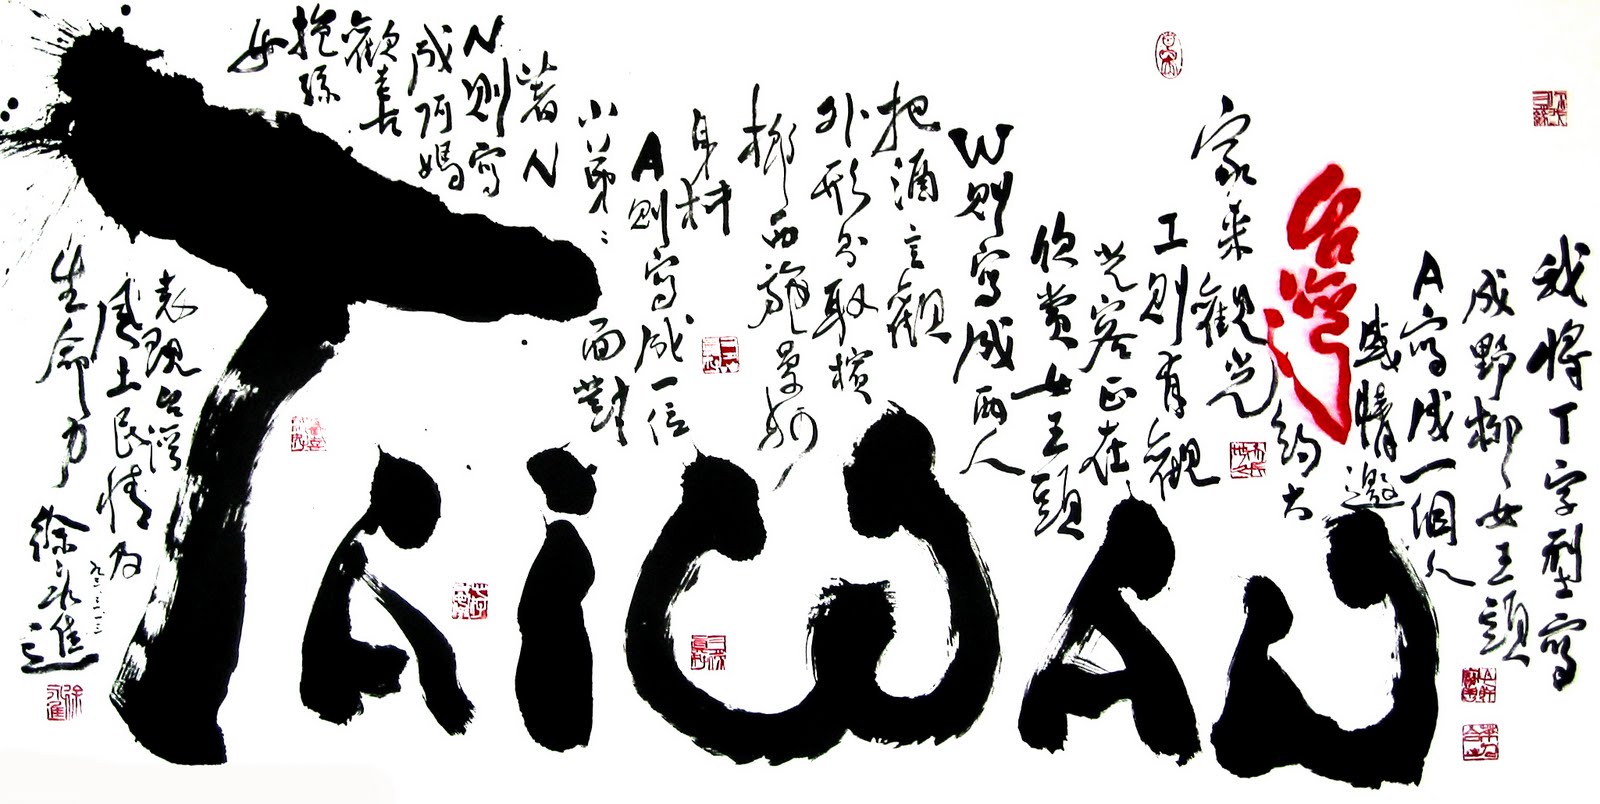 TAIWAN
我將T字型寫
成野柳女王頭
A寫成一個人
盛情邀
台灣
約大
家來觀光
I則有觀
光客正在
欣賞女王頭
W則寫成兩人
把酒言觀
外形則取檳
榔西施曼妙
身材
A則寫成一位
小弟弟面對
著N
N則寫
成阿媽
歡喜
抱孫
女
表現台灣
風土民情及
生命力
徐永進